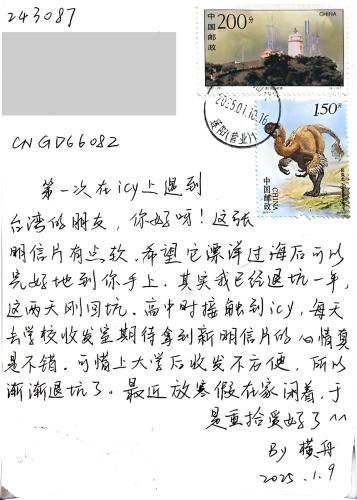 243087
CNGD66082
中国邮政
200分
CHINA
2025.01.10.16
(营业)
1.50元
中国邮政
CHINA
第一次在icy上遇到
台湾的朋友，你好呀！这张
明信片有点软，希望它漂洋过海后可以
完好地到你手上。其实我已经退坑一年，
这两天刚回坑。高中时接触到icy，每天
去学校收发室期待拿到新明信片的心情真
是不错。可惜上大学后收发不方便，所以
渐渐退坑了。最近放寒假在家闲着，于
是重拾爱好了^^
By 横舟
2025.1.9